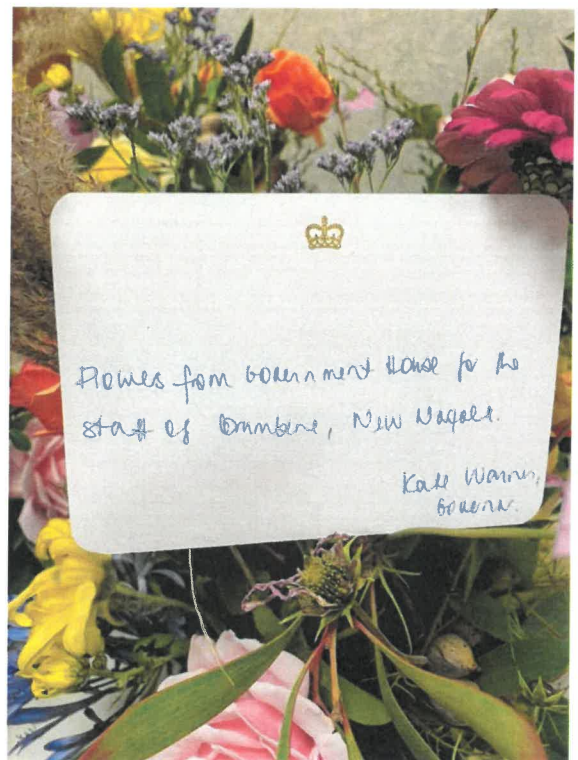 Flowers from Government House for the
staff of New
Kate Warner,
Governor.